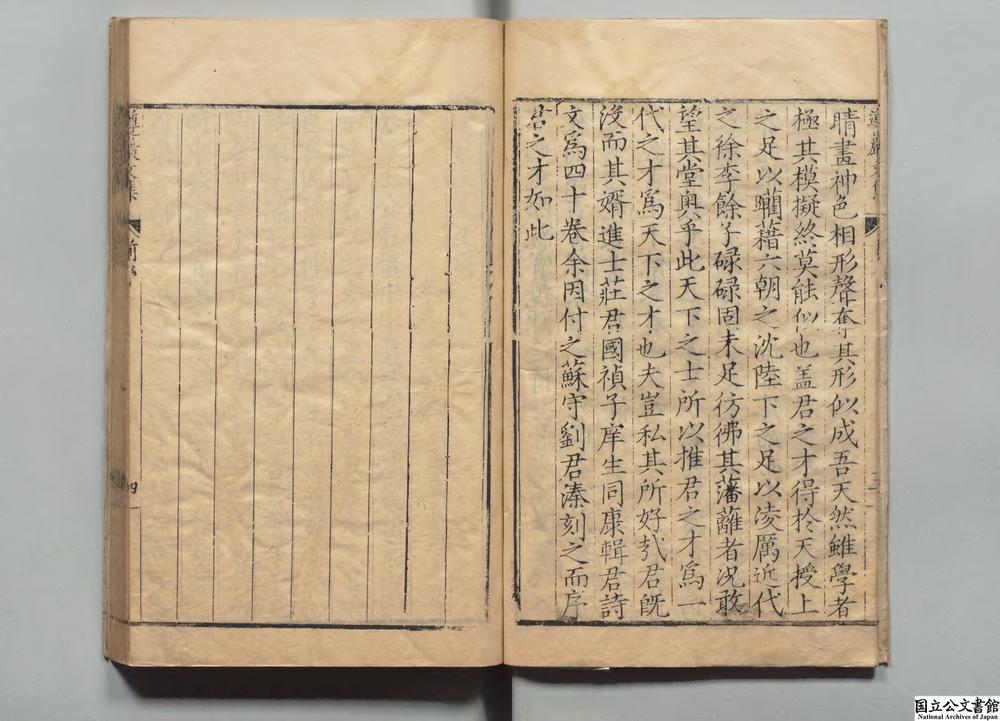 晴畫神色相形聲奪其形似成吾天然雖學者
極其模擬終莫能似也盖君之才得於天授上
之足以躪藉六朝之沈陸下之足以凌厲近代
之徐李餘子碌碌固未足彷彿其藩蘺者況敢
望其堂奥乎此天下之士所以推君之才爲一
代之才爲天下之才也夫豈私其所好㢤君旣
沒而其婿進士莊君國禎子庠生同康輯君詩
文爲四十卷余因付之蘇守劉君溱刻之而序
君之才如此
遵巖文集
前序
四
国立公文書館
National Archives of Japan